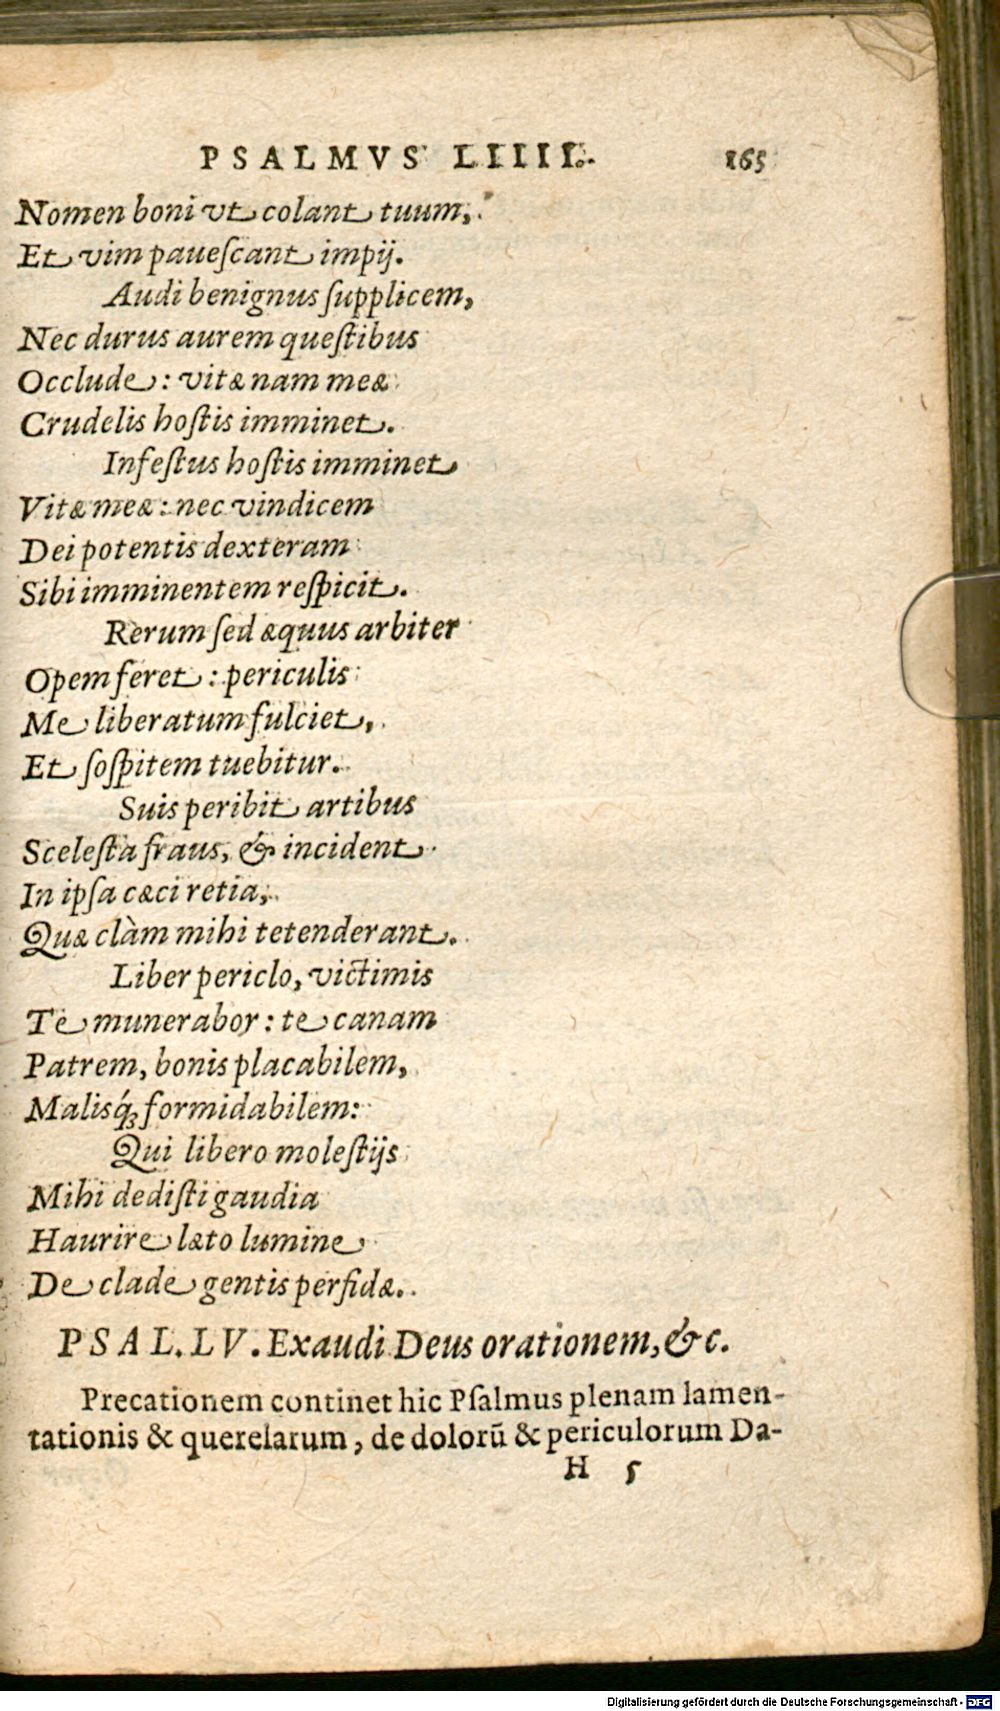 PSALMVS LIIII. 165
Nomen boni vt colant tuum,
Et vim paueſcant impij.
Audi benignus ſupplicem,
Nec durus aurem queſtibus
Occlude: vitæ nam meæ
Crudelis hoſtis imminet.
Infeſtus hoſtis imminet
Vitæ meæ: nec vindicem
Dei potentis dexteram
Sibi imminentem reſpicit.
Rerum ſed æquus arbiter
Opem feret: periculis
Me liberatum fulciet,
Et ſoſpitem tuebitur.
Suis peribit artibus
Sceleſta fraus, & incident
In ipſa cæci retia,
Quæ clàm mihi tetenderant.
Liber periclo, victimis
Te munerabor: te canam
Patrem, bonis placabilem,
Malisq́; formidabilem:
Qui libero moleſtijs
Mihi dediſti gaudia
Haurire læto lumine
De clade gentis perfidæ.
PSAL. LV. Exaudi Deus orationem, &c.
Precationem continet hic Pſalmus plenam lamen-
tationis & querelarum, de dolorũ & periculorum Da-
H 5
Digitalisierung gefördert durch die Deutsche Forschungsgemeinschaft - DFG